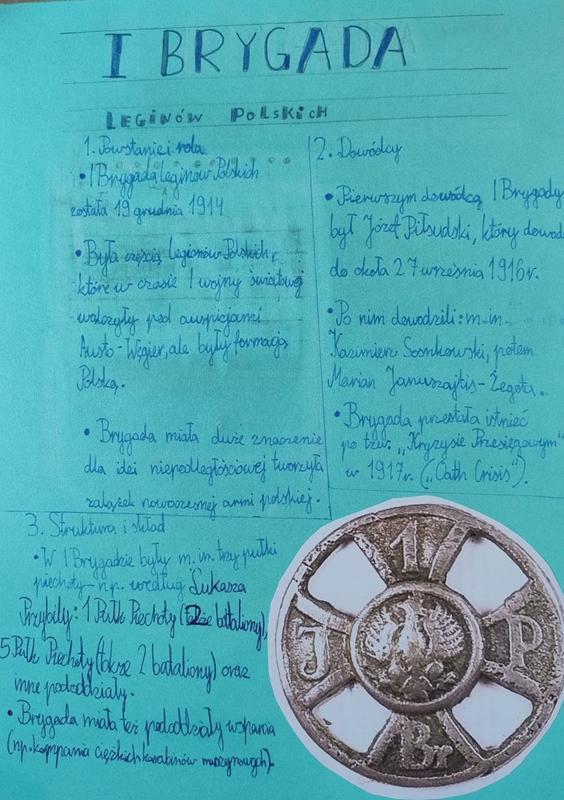 I BRYGADA
LEGINÓW POLSKICH
1. Powstanie i rola
• I Brygada leginów Polskich
została 19 grudnia 1914
• Była częścią Legionów Polskich,
które w czasie I wojny światowej
walczyły pod auspicjami
Austo-Węgier, ale były formacją
Polską.
• Brygada miała duże znaczenie
dla idei niepodległościowej tworzyła
zalążek nowoczesnej armi polskiej.
2. Dowódcy
• Pierwszym dowódcą I Brygady
był Józef Piłsudski, który dowod
do okoła 27 września 1916r.
• Po nim dowodzili: m.in.
Kazimierz Sosnkowski, potem
Marian Januszajtis-Żegota.
• Brygada przestała istnieć
po tzw. „Kryzysie Przesięgowym"
w 1917r. („Oath Crisis").
3. Struktura i skład
• W I Brygadzie były m.in. trzy pułki
piechoty - n.p. według Łukasza
Przybyły: 1 Pułk Piechoty ( bataliony),
5 Pułk Piechoty (także 2 bataliony) oraz
inne pododdziały.
• Brygada miała też pododdziały wsparcia
(np. kompania ciężkich karabinów maszynowych).
1
J P
Br